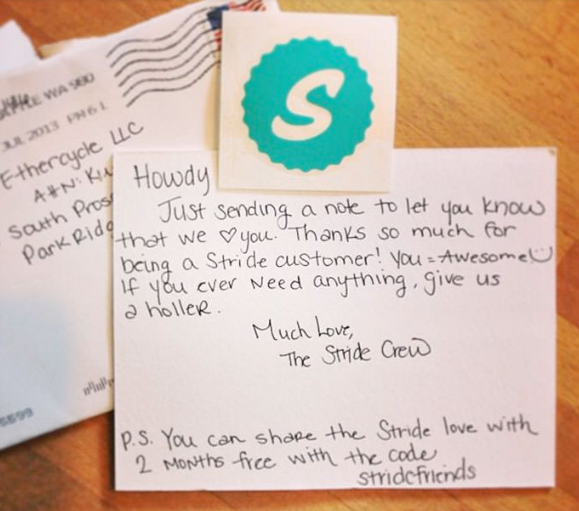 WA 980
JUL 2013 PM 6 L
Ethercycle LLC
South
Park
S
Howdy
Just sending a note to let you know
that we ♡ you. Thanks so much for
being a Stride customer! You = Awesome
If you ever need anything, give us
a holler.
Much Love,
The Stride Crew
P.S. You can share the Stride love with
2 months free with the code
stridefriends